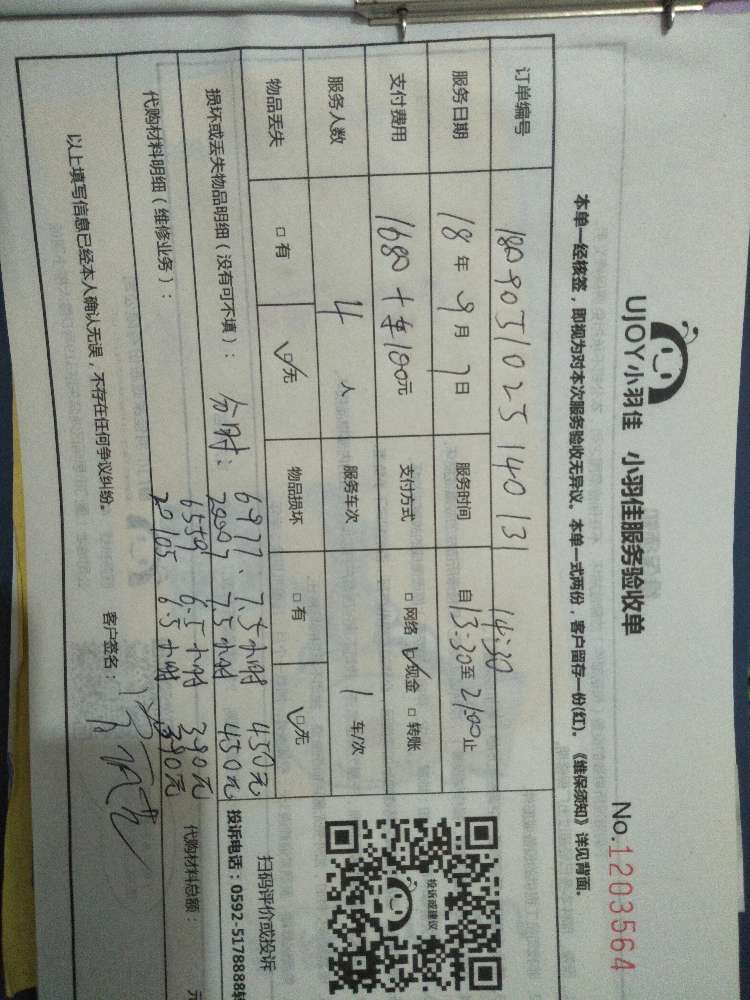 UJOY小羽佳 小羽佳服务验收单
No.1203564
本单一经核签，即视为对本次服务验收无异议。本单一式两份，客户留存一份(红)。《维保须知》详见背面。
订单编号 180905102514013​1
服务日期 18年9月7日 服务时间 自13:30至21:00止
14:30
支付费用 1680+车100元 支付方式 □网络 ☑现金 □转账
服务人数 4人 服务车次 1车/次
物品丢失 □有 ☑无 物品损坏 □有 ☑无
投诉或建议
损坏或丢失物品明细（没有可不填）： 分时： 6977、7.5小时 450元
7.5小时 450元
代购材料明细（维修业务）： 6559 6.5小时 390元
6.5小时 390元
扫码评价或投诉
投诉电话：0592-5178888转
代购材料总额： 元
以上填写信息已经本人确认无误，不存在任何争议纠纷。 客户签名：